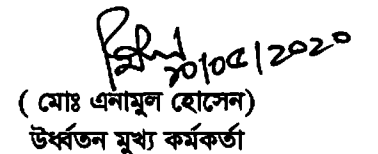 ২০/০৫/2020
( মোঃ এনামুল হোসেন)
উর্ধ্বতন মুখ্য কর্মকর্তা